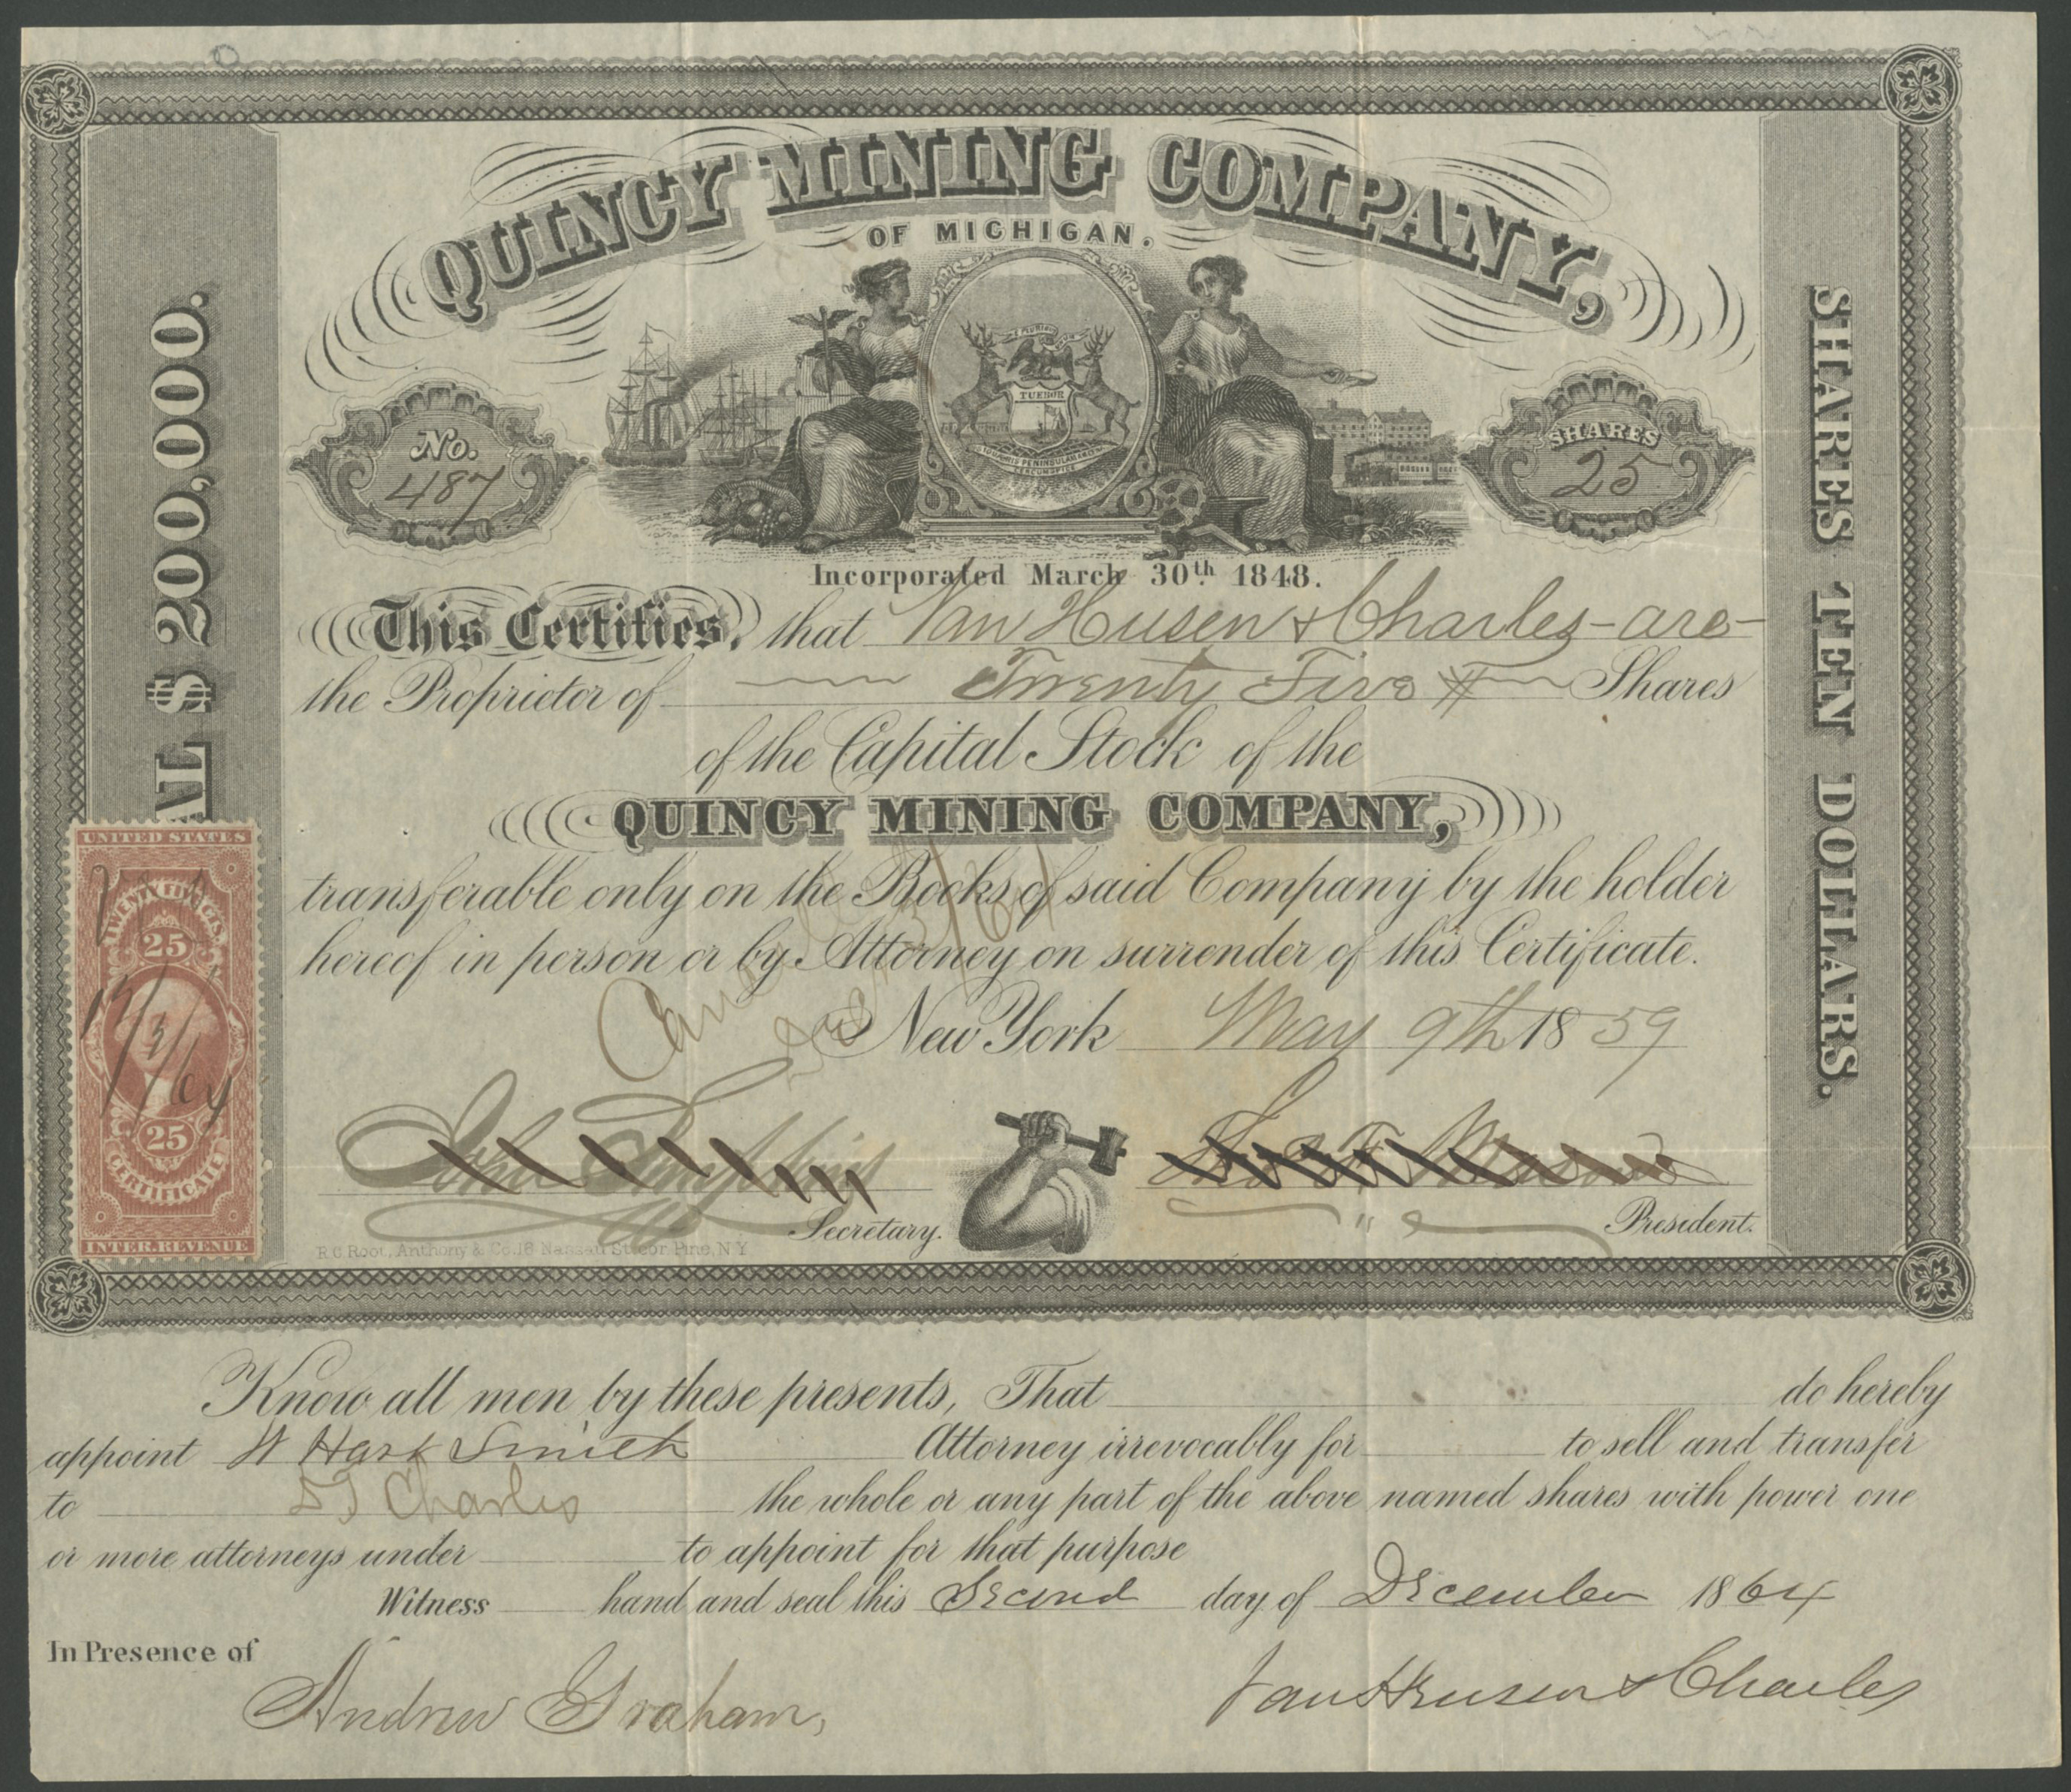 QUINCY MINING COMPANY,
OF MICHIGAN.
No.
487
TUEBOR
SHARES
25
Incorporated March 30th 1848.
This Certifies, that Van Husen & Charles - are -
the Proprietor of Twenty Five Shares
of the Capital Stock of the
QUINCY MINING COMPANY,
transferable only on the Books of said Company by the holder
hereof in person or by Attorney on surrender of this Certificate.
New York May 9th 1859
Secretary.
President.
R.C. Root, Anthony & Co. 16 Nassau St. cor. Pine, N.Y.
AL $200,000.
SHARES TEN DOLLARS.
UNITED STATES
TWENTY FIVE CTS.
25
12/3/64
25
CERTIFICATE
INTER. REVENUE
Know all men by these presents, That do hereby
appoint W Hart Smith Attorney irrevocably for to sell and transfer
to Charles the whole or any part of the above named shares with power one
or more attorneys under to appoint for that purpose
Witness hand and seal this Second day of December 1864
In Presence of
Andrew Graham,
Van Husen & Charles